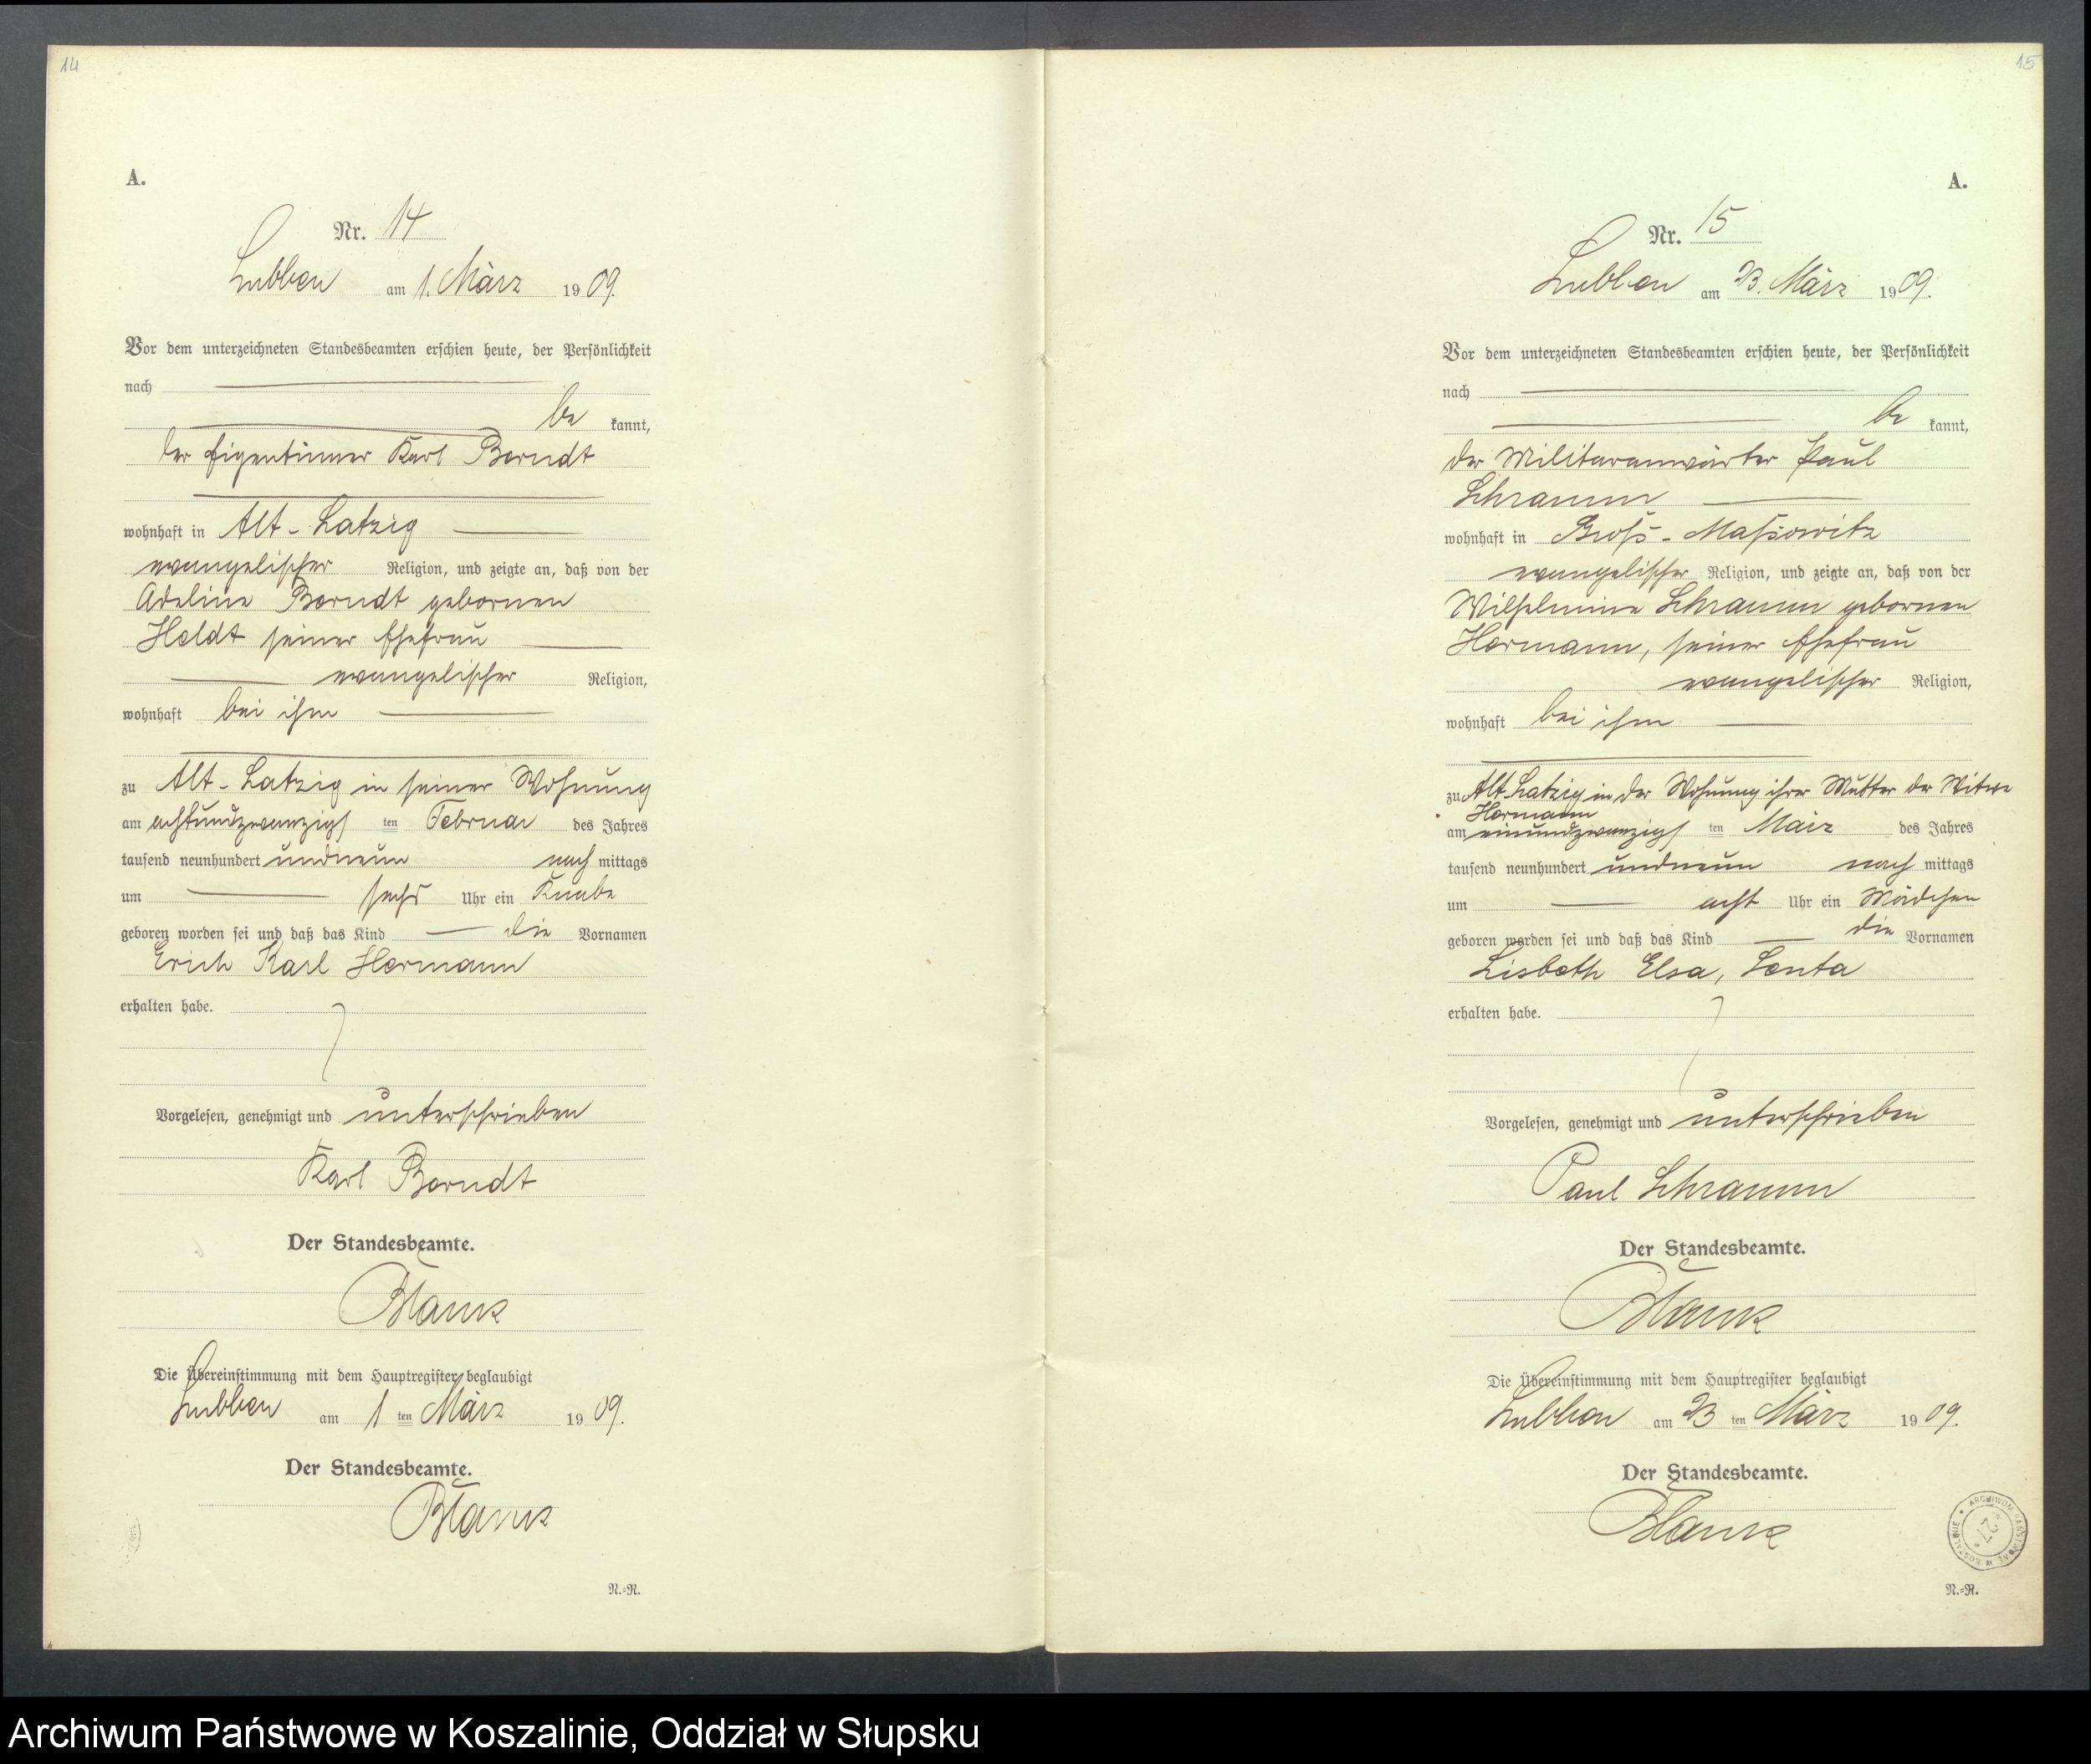 14
A.
Nr. 14
Lubben am 1. März 1909.
Vor dem unterzeichneten Standesbeamten erschien heute, der Persönlichkeit
nach
be kannt,
der Eigentümer Karl Berndt
wohnhaft in Alt-Latzig
evangelischer Religion, und zeigte an, daß von der
Adeline Berndt gebornen
Heldt seiner Ehefrau
evangelischer Religion,
wohnhaft bei ihm
zu Alt-Latzig in seiner Wohnung
am achtundzwanzigs ten Februar des Jahres
tausend neunhundert undneun nach mittags
um sechs Uhr ein Knabe
geboren worden sei und daß das Kind die Vornamen
Erich Karl Hermann
erhalten habe.
Vorgelesen, genehmigt und unterschrieben
Karl Berndt
Der Standesbeamte.
Blank
Die Übereinstimmung mit dem Hauptregister beglaubigt
Lubben am 1 ten März 1909.
Der Standesbeamte.
Blank
N.-R.
15
A.
Nr. 15
Lubben am 23. März 1909.
Vor dem unterzeichneten Standesbeamten erschien heute, der Persönlichkeit
nach
be kannt,
der Militäranwärter Paul
Schramm
wohnhaft in Gross-Massowitz
evangelischer Religion, und zeigte an, daß von der
Wilhelmine Schramm gebornen
Hermann, seiner Ehefrau
evangelischer Religion,
wohnhaft bei ihm
zu Alt Latzig in der Wohnung ihrer Mutter der Witwe
Hermann
am einundzwanzigs ten März des Jahres
tausend neunhundert undneun nach mittags
um acht Uhr ein Mädchen
geboren worden sei und daß das Kind die Vornamen
Lisbeth Elsa, Senta
erhalten habe.
Vorgelesen, genehmigt und unterschrieben
Paul Schramm
Der Standesbeamte.
Blank
Die Übereinstimmung mit dem Hauptregister beglaubigt
Lubben am 23 ten März 1909.
Der Standesbeamte.
Blank
ARCHIWUM PAŃSTWOWE W KOSZALINIE
*27*
N.-R.
Archiwum Państwowe w Koszalinie, Oddział w Słupsku